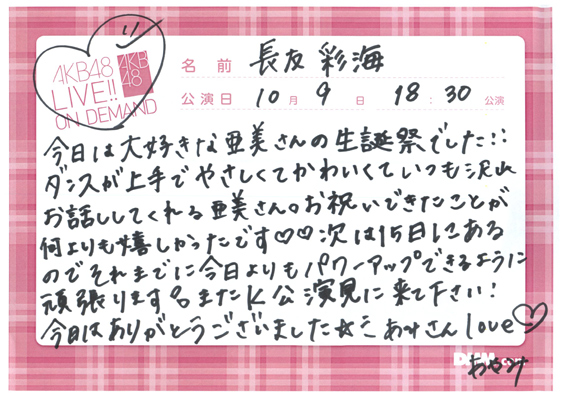 AKB48
LIVE!!
ON DEMAND
AKB
48
名前 長友彩海
公演日 10月9日 18:30公演
今日は大好きな亜美さんの生誕祭でした!!
ダンスが上手でやさしくてかわいくていつも沢山
お話ししてくれる亜美さん。お祝いできたことが
何よりも嬉しかったです♡♡次は15日にある
のでそれまでに今日よりもパワーアップできるように
頑張ります。またK公演見に来て下さい!
今日はありがとうございました☆ミ あみさんlove♡
DMM.com
あやみ